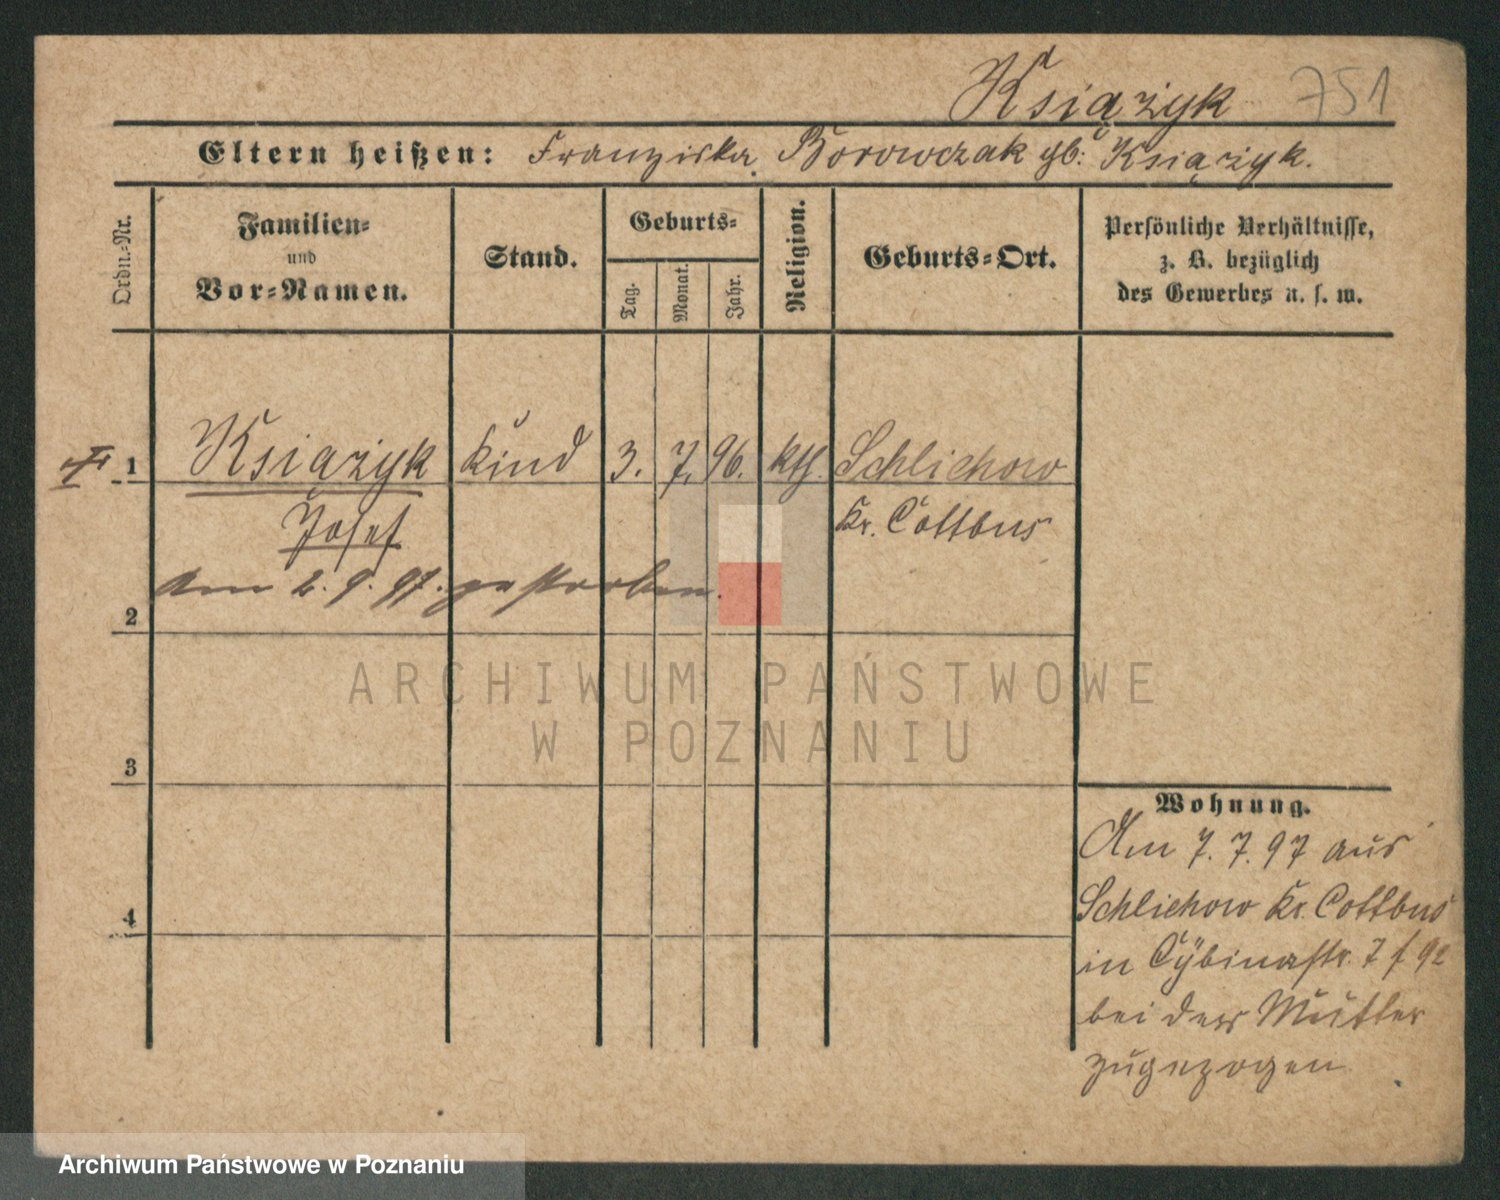 Książyk 751
Eltern heißen: Franziska Borowczak gb: Książyk.
Ordn.-Nr.
Familien-
und
Vor-Namen.
Stand.
Geburts-
Tag.
Monat.
Jahr.
Religion.
Geburts-Ort.
Persönliche Verhältnisse,
z. B. bezüglich
des Gewerbes u. s. w.
1 Książyk Kind 3. 7. 96. kth. Schlichow
Josef Kr. Cottbus
am 2. 9. 97. gestorben.
2
ARCHIWUM PAŃSTWOWE
W POZNANIU
3
Wohnung.
Am 7. 7. 97 aus
Schlichow Kr. Cottbus
in Cybinastr. 7 f 92
bei der Mutter
zugezogen
4
Archiwum Państwowe w Poznaniu